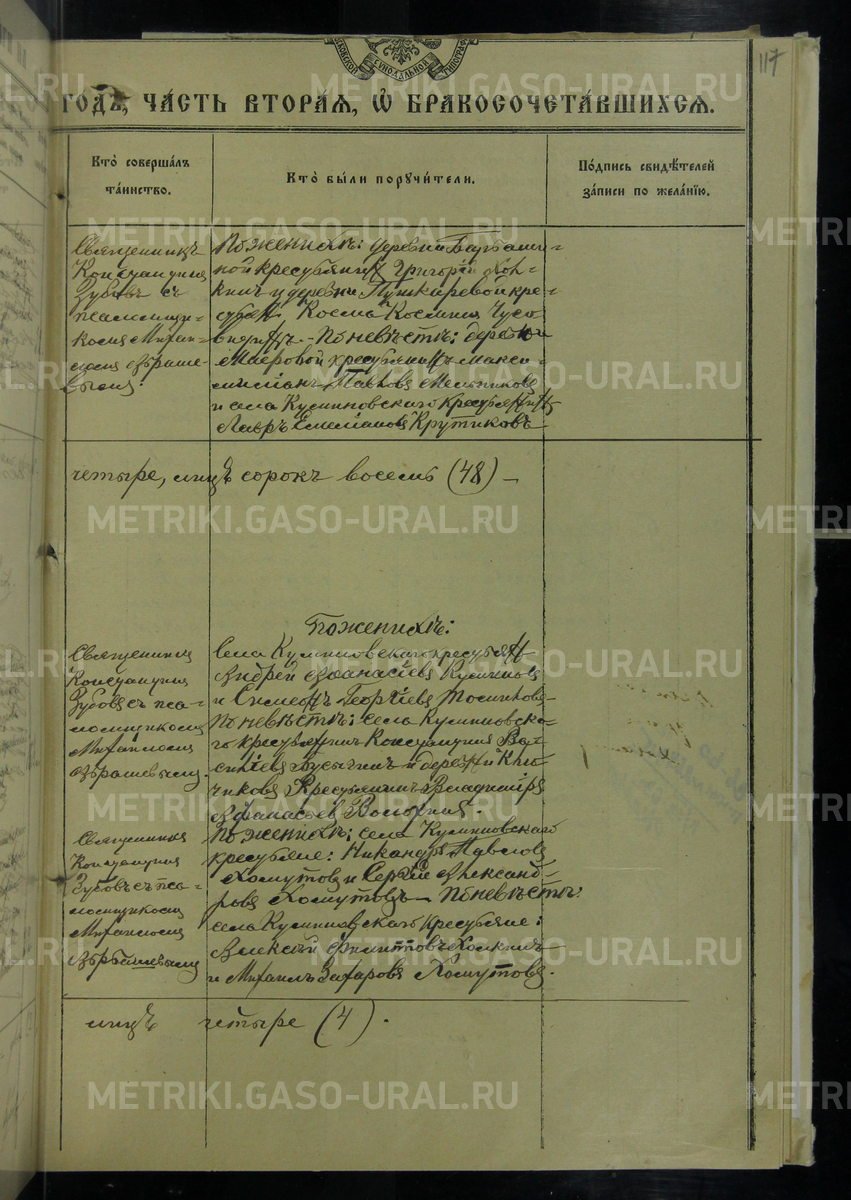 117
ГОДЪ, ЧАСТЬ ВТОРАЯ, Ѡ БРАКОСОЧЕТАВШИХСЯ.
Кто совершалъ
таинство.
Кто были поручители.
Подпись свидѣтелей
записи по желанію.
Священникъ
Константинъ
Зубовъ с
псаломщи-
комъ Михаи-
ломъ
По женихѣ: деревни
ной крестьянинъ Григорій
и деревни Пушкаревой кре-
стьян. Косма Косминъ Чусо
витинъ. - По невѣстѣ: деревни
Маеровой крестьянинъ Макси-
миліанъ Павловъ Мельниковъ
и села Куминовскаго крестьянинъ
Лавръ Емеліановъ Крутиковъ
четыре, лицъ сорокъ восемь (48) –
Священникъ
Константинъ
Зубовъ с пса-
ломщикомъ
Михаиломъ
По женихѣ:
Села Куминовскаго крестьян
Андрей Афанасіевъ Куминовъ
и Симеонъ Георгіевъ
По невѣстѣ: села Куминовска-
го крестьянинъ Константинъ Ва-
силіевъ и деревни Клю-
чиковъ крестьянинъ Владиміръ
Афанасьев
Священникъ
Константинъ
Зубовъ с пса-
ломщикомъ
Михаиломъ
По женихѣ: села Куминовскаго
крестьяне: Никандръ Павловъ
Хомутовъ и Сергій Александ-
ровъ Хомутовъ – По невѣстѣ:
села Куминовскаго крестьяне:
Алексѣй Филипповъ
и Михаилъ Захаровъ Хомутовъ.
лицъ четыре (4).
METRIKI.GASO-URAL.RU